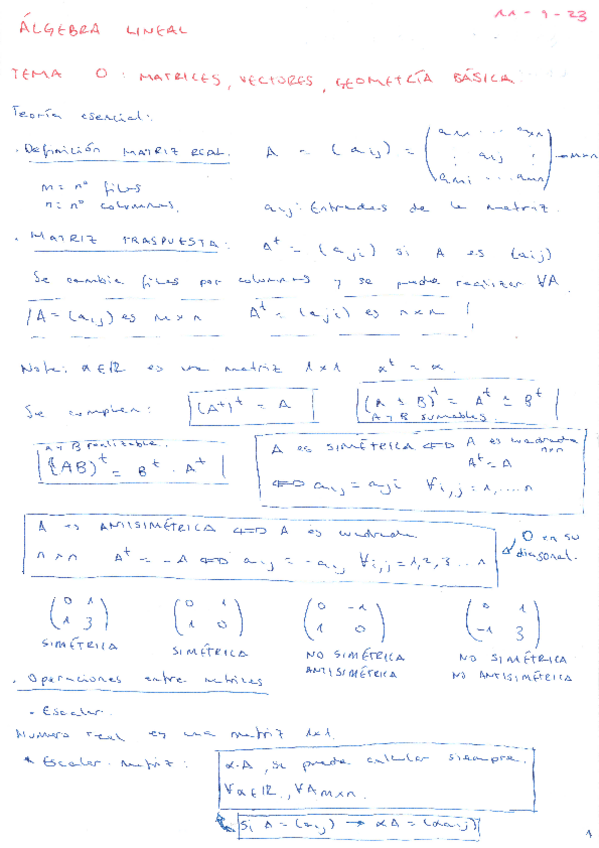 11-9-23
ÁLGEBRA LINEAL
TEMA 0: MATRICES, VECTORES, GEOMETRÍA BÁSICA
Teoría esencial:
. Definición MATRIZ REAL. A = (aij) = (a11 ... a1n : aij : am1 ... amn) → m×n
m = nº filas
n = nº columnas. aij: Entradas de la matriz.
. MATRIZ TRASPUESTA: A^t = (aji) si A es (aij)
Se cambia filas por columnas y se puede realizar ∀A.
A = (aij) es m×n A^t = (aji) es n×m
Nota: α∈ℝ es una matriz 1×1 α^t = α.
Se cumplen: (A^t)^t = A (A ± B)^t = A^t ± B^t
A y B sumables.
A y B realizable.
(AB)^t = B^t · A^t
A es SIMÉTRICA ⇔ A es cuadrada n×n
A^t = A
⇔ aij = aji ∀i,j = 1,...n
A es ANTISIMÉTRICA ⇔ A es cuadrada
n×n A^t = -A ⇔ aij = -aij ∀i,j = 1,2,3...n
0 en su diagonal.
(0 1 / 1 3) (0 1 / 1 0) (0 -1 / 1 0) (0 1 / -1 3)
SIMÉTRICA SIMÉTRICA NO SIMÉTRICA NO SIMÉTRICA
ANTISIMÉTRICA NO ANTISIMÉTRICA
. Operaciones entre matrices
- Escalar.
Numero real es una matriz 1×1.
* Escalar · matriz: α·A, se puede calcular siempre.
∀α∈ℝ, ∀A m×n.
Si A = (aij) → αA = (αaij)
1